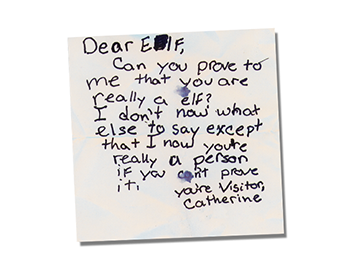 Dear Elf,
Can you prove to
me that you are
really a elf?
I don't now what
else to say except
that I now you're
really a person
if you can't prove
it.
you're Visitor,
Catherine